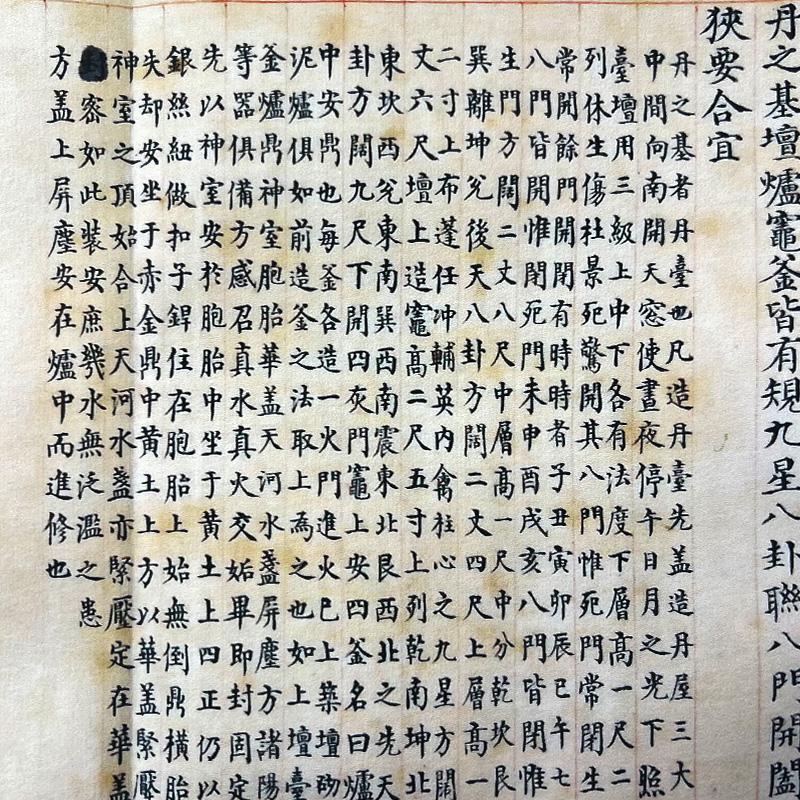 丹之基壇爐竈釜皆有規九星八卦聯八門開闔
狹要合宜
丹之基者丹臺也凡造丹臺先盖造丹屋三大
中間向南開天窓使晝夜停午日月之光下照
臺壇用三級上中下各有法度下層高一尺二
列休生傷杜景死驚開其八門惟死門常閉生
常開餘門開閉有時時者子丑寅卯辰巳午七
八門皆開惟閉死門未申酉戌亥八門皆閉惟
生門方闊二丈八尺中層高一尺中分乾坎艮
巽離坤兌後天八卦方闊二丈四尺上層高一
二寸上布蓬任冲輔英内禽柱心之九星方闊
丈六尺壇上造竈高二尺五寸上列乾南坤北
東坎西兌東南巽西南震東北艮西北之先天
卦方闊九尺下開四灰門竈上安四釜名曰爐
中安鼎也每釜各造一火門進火巳上築壇砌
泥爐俱如前造釜之法取上為之也如上壇臺
釜爐鼎神室胞胎華盖天河水盞屏塵方諸陽
等器俱備方感召真水真火交姤畢即封固定
先以神室安扵胞胎中坐于黄土上四正仍以
銀絲紐做扣子銲住在胞胎上始無倒鼎橫胎
失却安坐于赤金鼎中黄土上方以華盖緊壓
神室之頂始合上天河水盞亦緊壓定在華盖
密如此裝安庶幾水無泛濫之患
方盖上屏塵安在爐中而進修也